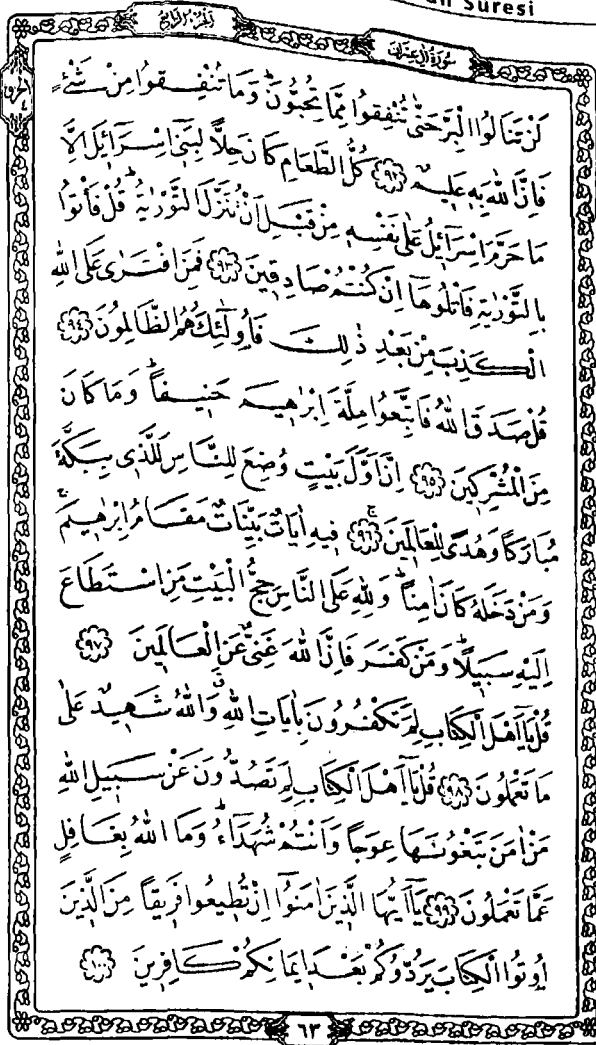 Suresi
الجزء الرابع
سورة آل عمران
الحزب ٤
لَنْ تَنَالُوا الْبِرَّ حَتّٰى تُنْفِقُوا مِمَّا تُحِبُّونَۜ وَمَا تُنْفِقُوا مِنْ شَيْءٍ
فَاِنَّ اللّٰهَ بِه۪ عَل۪يمٌ ﴿٩٢﴾ كُلُّ الطَّعَامِ كَانَ حِلًّا لِبَن۪ٓي اِسْرَٓائ۪لَ اِلَّا
مَا حَرَّمَ اِسْرَٓائ۪لُ عَلٰى نَفْسِه۪ مِنْ قَبْلِ اَنْ تُنَزَّلَ التَّوْرٰيةُۜ قُلْ فَأْتُوا
بِالتَّوْرٰيةِ فَاتْلُوهَٓا اِنْ كُنْتُمْ صَادِق۪ينَ ﴿٩٣﴾ فَمَنِ افْتَرٰى عَلَى اللّٰهِ
الْكَذِبَ مِنْ بَعْدِ ذٰلِكَ فَاُو۬لٰٓئِكَ هُمُ الظَّالِمُونَ ﴿٩٤﴾
قُلْ صَدَقَ اللّٰهُ فَاتَّبِعُوا مِلَّةَ اِبْرٰه۪يمَ حَن۪يفًاۜ وَمَا كَانَ
مِنَ الْمُشْرِك۪ينَ ﴿٩٥﴾ اِنَّ اَوَّلَ بَيْتٍ وُضِعَ لِلنَّاسِ لَلَّذ۪ي بِبَكَّةَ
مُبَارَكًا وَهُدًى لِلْعَالَم۪ينَۚ ﴿٩٦﴾ ف۪يهِ اٰيَاتٌ بَيِّنَاتٌ مَقَامُ اِبْرٰه۪يمَۚ
وَمَنْ دَخَلَهُ كَانَ اٰمِنًاۜ وَلِلّٰهِ عَلَى النَّاسِ حِجُّ الْبَيْتِ مَنِ اسْتَطَاعَ
اِلَيْهِ سَب۪يلًاۜ وَمَنْ كَفَرَ فَاِنَّ اللّٰهَ غَنِيٌّ عَنِ الْعَالَم۪ينَ ﴿٩٧﴾
قُلْ يَٓا اَهْلَ الْكِتَابِ لِمَ تَكْفُرُونَ بِاٰيَاتِ اللّٰهِۗ وَاللّٰهُ شَه۪يدٌ عَلٰى
مَا تَعْمَلُونَ ﴿٩٨﴾ قُلْ يَٓا اَهْلَ الْكِتَابِ لِمَ تَصُدُّونَ عَنْ سَب۪يلِ اللّٰهِ
مَنْ اٰمَنَ تَبْغُونَهَا عِوَجًا وَاَنْتُمْ شُهَدَٓاءُۜ وَمَا اللّٰهُ بِغَافِلٍ
عَمَّا تَعْمَلُونَ ﴿٩٩﴾ يَٓا اَيُّهَا الَّذ۪ينَ اٰمَنُٓوا اِنْ تُط۪يعُوا فَر۪يقًا مِنَ الَّذ۪ينَ
اُو۫تُوا الْكِتَابَ يَرُدُّوكُمْ بَعْدَ ا۪يمَانِكُمْ كَافِر۪ينَ ﴿١٠٠﴾
٦٣